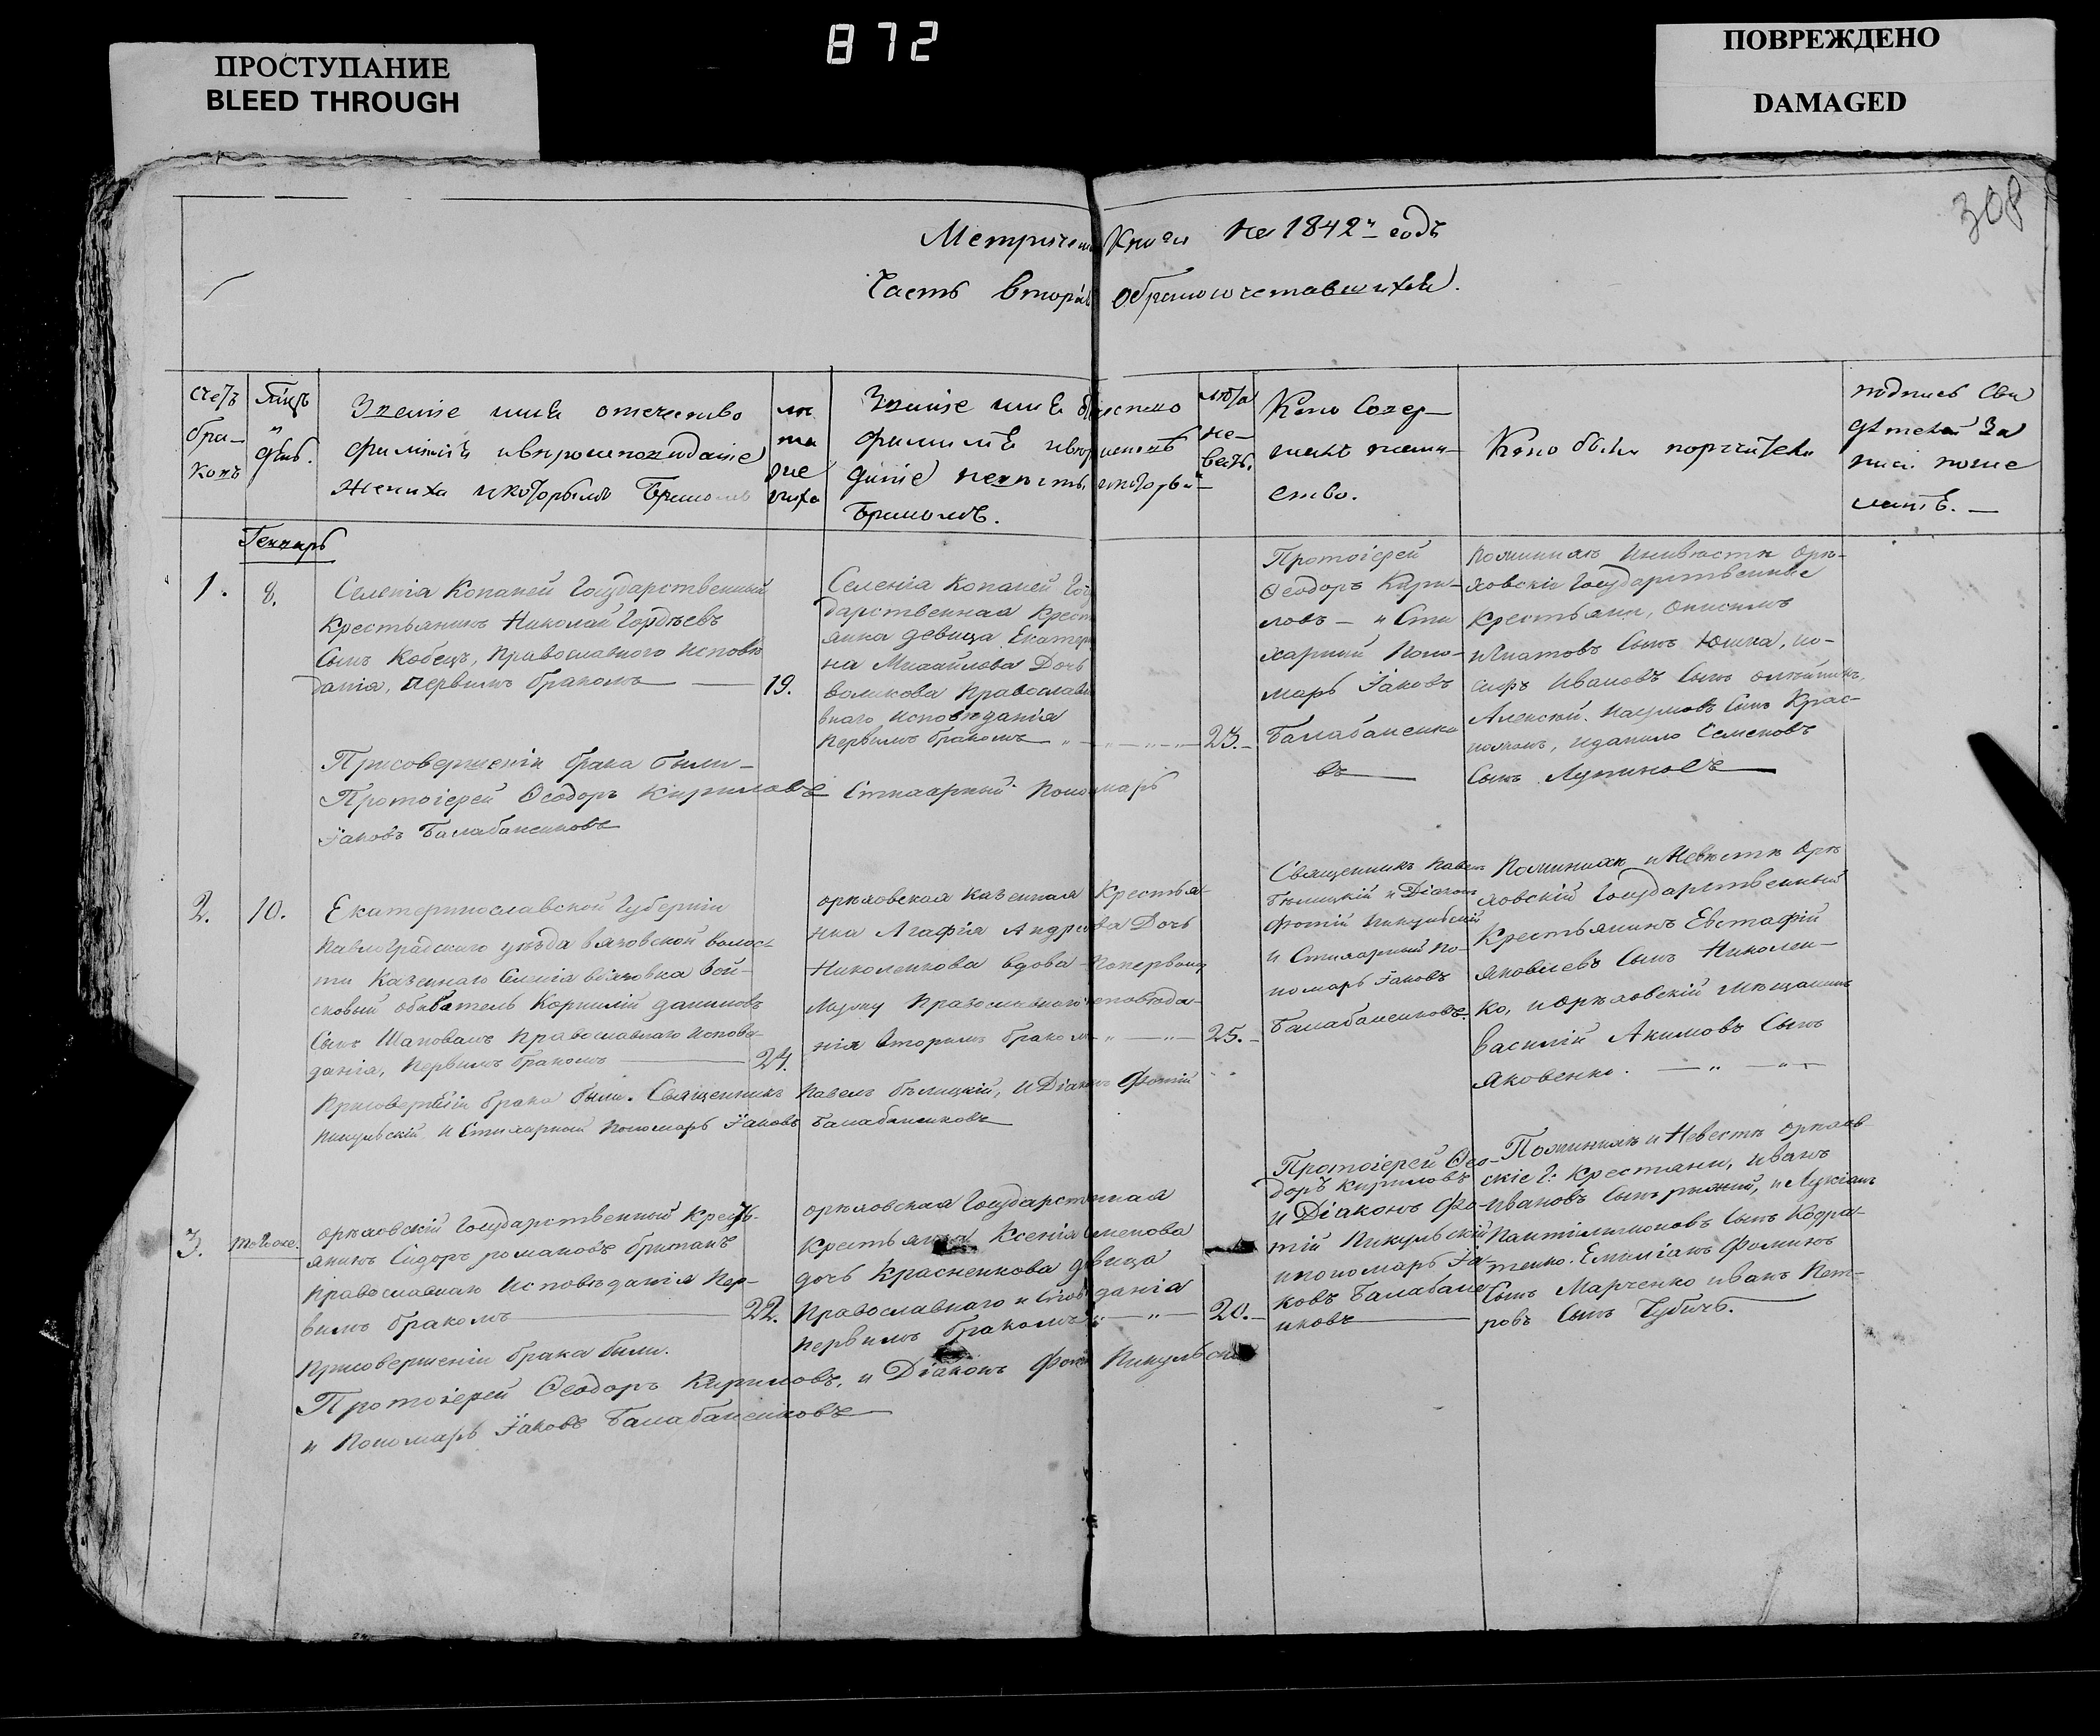 872
ПРОСТУПАНИЕ
BLEED THROUGH
ПОВРЕЖДЕНО
DAMAGED
308
Метрической Книги на 1842й годъ
Часть вторая о бракосочетавшихся.
Счетъ
бра-
ковъ
Мѣсяцъ
и
день.
Званіе имя отечество
фамилія и вѣроисповѣданіе
жениха и которымъ бракомъ
лѣ
та
же
ниха
Званіе имя отечество
фамилія и вѣроисповѣ
даніе невѣсты и которымъ
бракомъ.
лѣта
не-
весты
Кто Совер-
шалъ таин-
ство.
Кто были поручители
подпись Сви
дѣтелей За
писи по же
ланію. —
Генварь
1.
8.
Селенія Копаней Государственный
Крестьянинъ Николай Гордѣевъ
Сынъ Кобецъ, Православнаго исповѣ
данія, первымъ бракомъ —
19.
Селенія Копаней Госу
дарственная Крест
янка девица Екатери
на Михайлова Дочь
Воликова Православ
внаго исповѣданія
Первымъ бракомъ
23.
Протоіерей
Ѳеодоръ Кири-
ловъ — и Сти
харный Поно-
марь Іаковъ
Балабаненко
въ —
По женихѣ и невѣстѣ Орѣ-
ховскіе Государственные
Крестьяни, Онисимъ
Игнатовъ Сынъ Юшка, ио-
сифъ Ивановъ Сынъ Олейникъ,
Алексій Наумовъ Сынъ Крас-
, и данило Семеновъ
Сынъ
При совершеніи брака были —
Протоіерей Ѳеодоръ Кириловъ Стихарный Пономарь
Іаковъ Балабаненковъ
2.
10.
Екатеринославской Губерніи
Павлоградскаго уѣзда Вязовской волос
ти Казеннаго Селенія Вязовка Вой-
сковый обыватель Корнилій даниловъ
Сынъ Шаповалъ Православнаго исповѣ
данія, Первымъ бракомъ —
24.
орѣховская казенная Крестья-
нка Агафія Андреева Дочь
Николенкова вдова По первому
Мужу Православнаго исповѣда-
нія вторымъ бракомъ
25.
Священникъ Павелъ
Бѣлицкій и Діаконъ
Фотій Пикульскій
и Стихарный По-
номарь Іаковъ
Балабаненковъ.
По женихѣ и Невѣстѣ Орѣ
ховскій Государственный
Крестьянинъ Евстафій
Яковлевъ Сынъ Николен-
ко, и Орѣховскій мещанинъ
Василій Акимовъ Сынъ
Яковенко.
При совершеніи брака были. Священникъ Павелъ Бѣлицкій, и Діаконъ Фотій
Пикульскій и Стихарный Пономарь Іаковъ Балабаненковъ
3.
того же.
орѣховскій Государственный Крестъ-
янинъ Сидоръ романовъ британъ
Православнаго исповѣданія Пер-
вымъ бракомъ —
22.
орѣховская Государственная
Крестьянка Ксенія Семенова
дочь Красненкова девица
Православнаго исповѣданія
первымъ бракомъ
20.
Протоіерей Ѳео-
доръ Кириловъ
и Діаконъ Фо-
тій Пикульскій
и пономарь Іа-
ковъ Балабане
нковъ —
По женихѣ и Невестѣ орѣхов
скіе Г: Крестяни, Иванъ
Ивановъ Сынъ рыжий, и Лукіанъ
Пантілимоновъ Сынъ Кодра-
тенко. Емиліанъ Фоминъ
Сынъ Марченко иванъ Пет-
ровъ Сынъ Чубичь.
При совершеніи брака были.
Протоіерей Ѳеодоръ Кириловъ, и Діаконъ Фотій Пикульскій
и Пономарь Іаковъ Балабаненковъ —